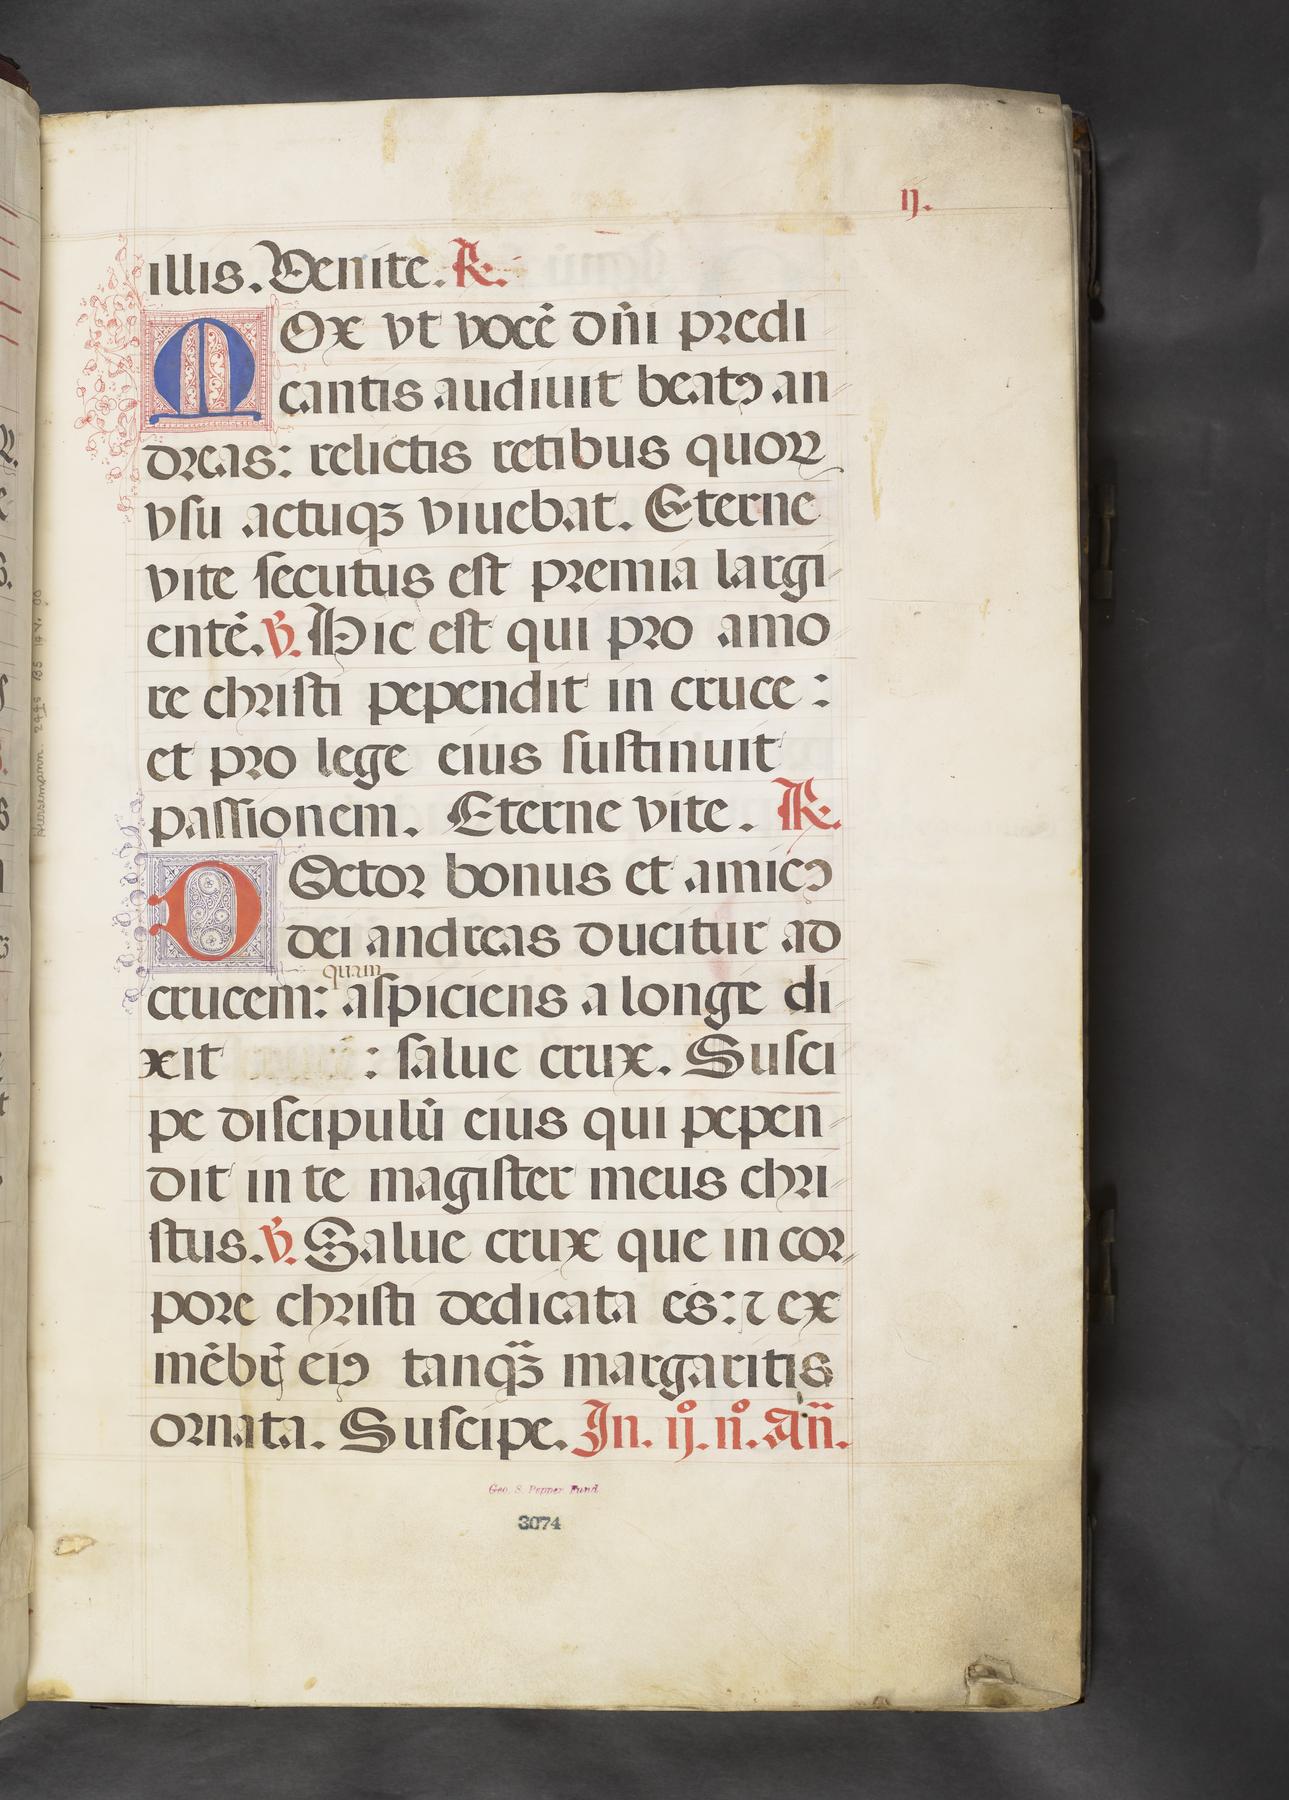 ij.
illis. Venite. R.
MOx vt vocē dn̄i predi
cantis audiuit beatꝰ an
dreas: relictis retibus quoꝝ
vsu actuqꝫ viuebat. Eterne
vite secutus est premia largi
entē. V. Hic est qui pro amo
re christi pependit in cruce:
et pro lege eius sustinuit
passionem. Eterne vite. R.
DOctor bonus et amicꝰ
dei andreas ducitur ad
quam
crucem: aspiciens a longe di
xit : salue crux. Susci
pe discipulū eius qui pepen
dit in te magister meus chri
stus. V. Salue crux que in cor
pore christi dedicata es: ⁊ ex
mēbrꝭ eiꝰ tanqꝫ margaritis
ornata. Suscipe. In. ij. n̊. an̄.
Geo. S. Pepper Fund.
3074